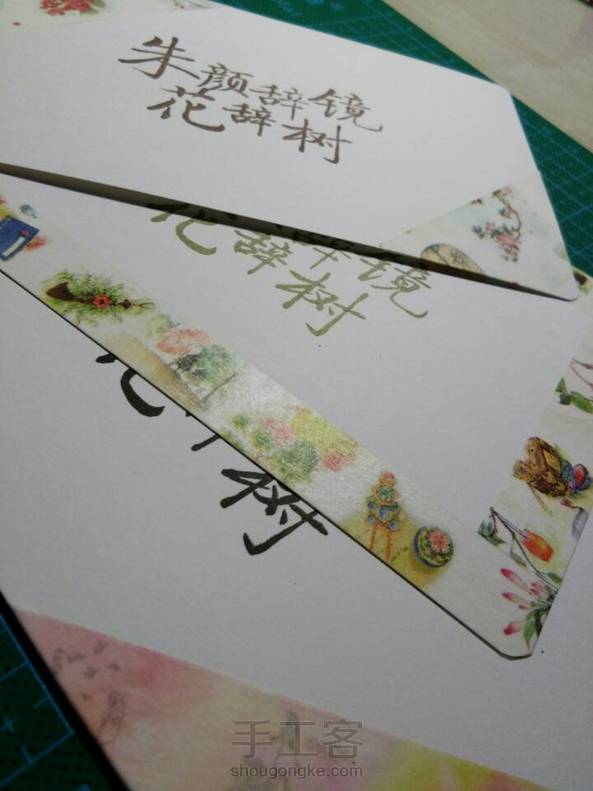 朱颜辞镜
花辞树
辞镜
花辞树
花
树
手工客
shougongke.com